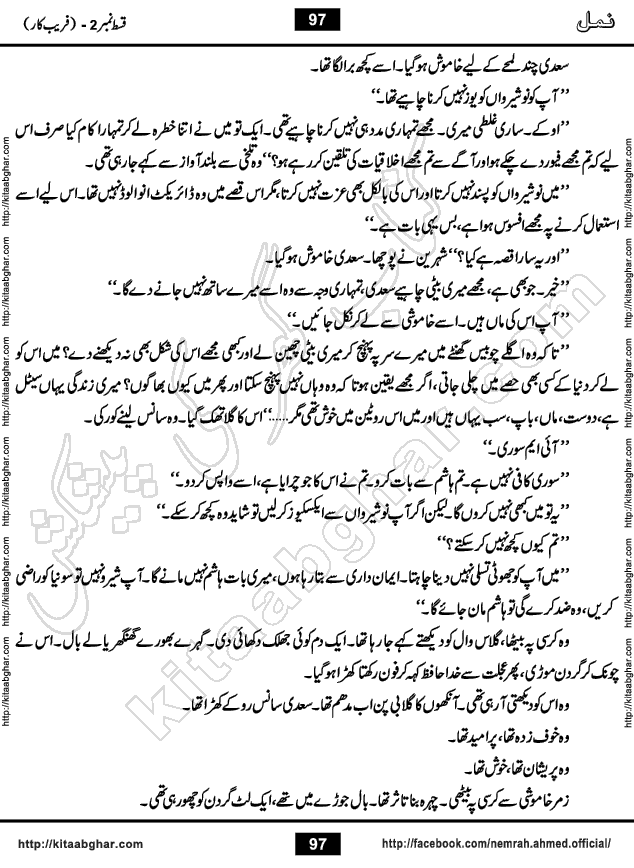 نمل
97
قسط نمبر 2 - (فریب کار)
سعدی چند لمحے کے لیے خاموش ہوگیا۔ اسے کچھ برا لگا تھا۔
’’آپ کو نوشیرواں کو یوز نہیں کرنا چاہیے تھا۔‘‘
’’اوکے۔ ساری غلطی میری۔ مجھے تمہاری مدد ہی نہیں کرنا چاہیے تھی۔ ایک تو میں نے اتنا خطرہ لے کر تمہارا کام کیا صرف اس
لیے کہ تم مجھے فیور دے چکے ہو اور آگے سے تم مجھے اخلاقیات کی تلقین کر رہے ہو؟‘‘ وہ تلخی سے بلند آواز سے کہے جا رہی تھی۔
’’میں نوشیرواں کو پسند نہیں کرتا اور اس کی بالکل بھی عزت نہیں کرتا، مگر اس قصے میں وہ ڈائریکٹ انوالوڈ نہیں تھا۔ اس لیے اسے
استعمال کرنے پہ مجھے افسوس ہوا ہے، بس یہی بات ہے۔‘‘
’’اور یہ سارا قصہ ہے کیا؟‘‘ شہرین نے پوچھا۔ سعدی خاموش ہوگیا۔
’’خیر۔ جو بھی ہے، مجھے میری بیٹی چاہیے سعدی، تمہاری وجہ سے وہ اسے میرے ساتھ نہیں جانے دے گا۔‘‘
’’آپ اس کی ماں ہیں۔ اسے خاموشی سے لے کر نکل جائیں۔‘‘
’’تاکہ وہ اگلے چوبیس گھنٹے میں میرے سر پہ پہنچ کر میری بیٹی چھین لے اور کبھی مجھے اس کی شکل بھی نہ دیکھنے دے؟ میں اس کو
لے کر دنیا کے کسی بھی حصے میں چلی جاتی، اگر مجھے یقین ہوتا کہ وہ وہاں نہیں پہنچ سکتا اور پھر میں کیوں بھاگوں؟ میری زندگی یہاں سیٹل
ہے، دوست، ماں، باپ، سب یہاں ہیں اور میں اس روٹین میں خوش تھی مگر......‘‘ اس کا گلا تھک گیا۔ وہ سانس لینے کو رکی۔
’’آئی ایم سوری۔‘‘
’’سوری کافی نہیں ہے۔ تم ہاشم سے بات کرو۔ تم نے اس کا جو چرایا ہے، اسے واپس کر دو۔‘‘
’’یہ تو میں کبھی نہیں کروں گا۔ لیکن اگر آپ نوشیرواں سے ایکسکیوز کر لیں تو شاید وہ کچھ کر سکے۔‘‘
’’تم کیوں کچھ نہیں کر سکتے؟‘‘
’’میں آپ کو جھوٹی تسلی نہیں دینا چاہتا۔ ایمان داری سے بتا رہا ہوں، میری بات ہاشم نہیں مانے گا۔ آپ شیرو نہیں تو سونیا کو راضی
کریں، وہ ضد کرے گی تو ہاشم مان جائے گا۔‘‘
وہ کرسی پہ بیٹھا، گلاس وال کو دیکھتے کہے جا رہا تھا۔ ایک دم کوئی جھلک دکھائی دی۔ گہرے بھورے گھنگھریالے بال۔ اس نے
چونک کر گردن موڑی، پھر عجلت سے خدا حافظ کہہ کر فون رکھتا کھڑا ہوگیا۔
وہ اس کو دیکھتی آ رہی تھی۔ آنکھوں کا گلابی پن اب مدھم تھا۔ سعدی سانس روکے کھڑا تھا۔
وہ خوف زدہ تھا، پرامید تھا۔
وہ پریشان تھا، خوش تھا۔
زمر خاموشی سے کرسی پہ بیٹھی۔ چہرہ بنا تاثر تھا۔ بال جوڑے میں تھے، ایک لٹ گردن کو چھو رہی تھی۔
http://kitaabghar.com
97
http://facebook.com/nemrah.ahmed.official/
http://kitaabghar.com
http://kitaabghar.com
http://kitaabghar.com
http://kitaabghar.com
http://kitaabghar.com
http://kitaabghar.com
http://kitaabghar.com
http://kitaabghar.com
http://kitaabghar.com
http://kitaabghar.com
http://kitaabghar.com
http://kitaabghar.com
کتاب گھر کی پیشکش
kitaabghar.com